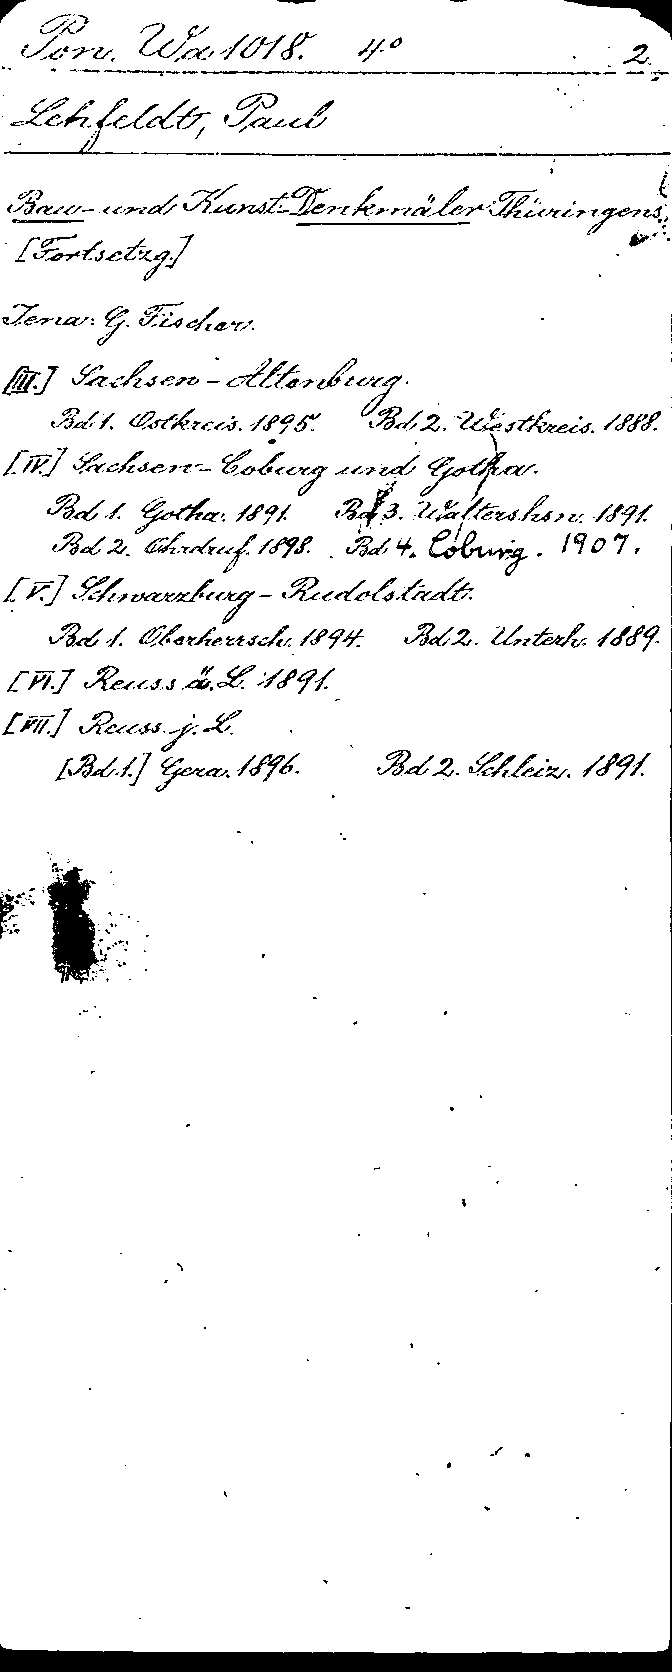 Pon. Wa 1018. 4° 2.
Lehfeldt, Paul
Bau- und Kunst-Denkmäler Thüringens.
[Fortsetzg.]
Jena: G. Fischer.
[III.] Sachsen-Altenburg.
Bd 1. Ostkreis. 1895. Bd 2. Westkreis. 1888.
[IV.] Sachsen-Coburg und Gotha.
Bd 1. Gotha. 1891. Bd 3. Waltershsn. 1891.
Bd 2. Ohrdruf. 1898. Bd 4. Coburg. 1907.
[V.] Schwarzburg-Rudolstadt.
Bd 1. Oberherrsch. 1894. Bd 2. Unterh. 1889.
[VI.] Reuss ä. L. 1891.
[VII.] Reuss j. L.
[Bd 1.] Gera. 1896. Bd 2. Schleiz. 1891.